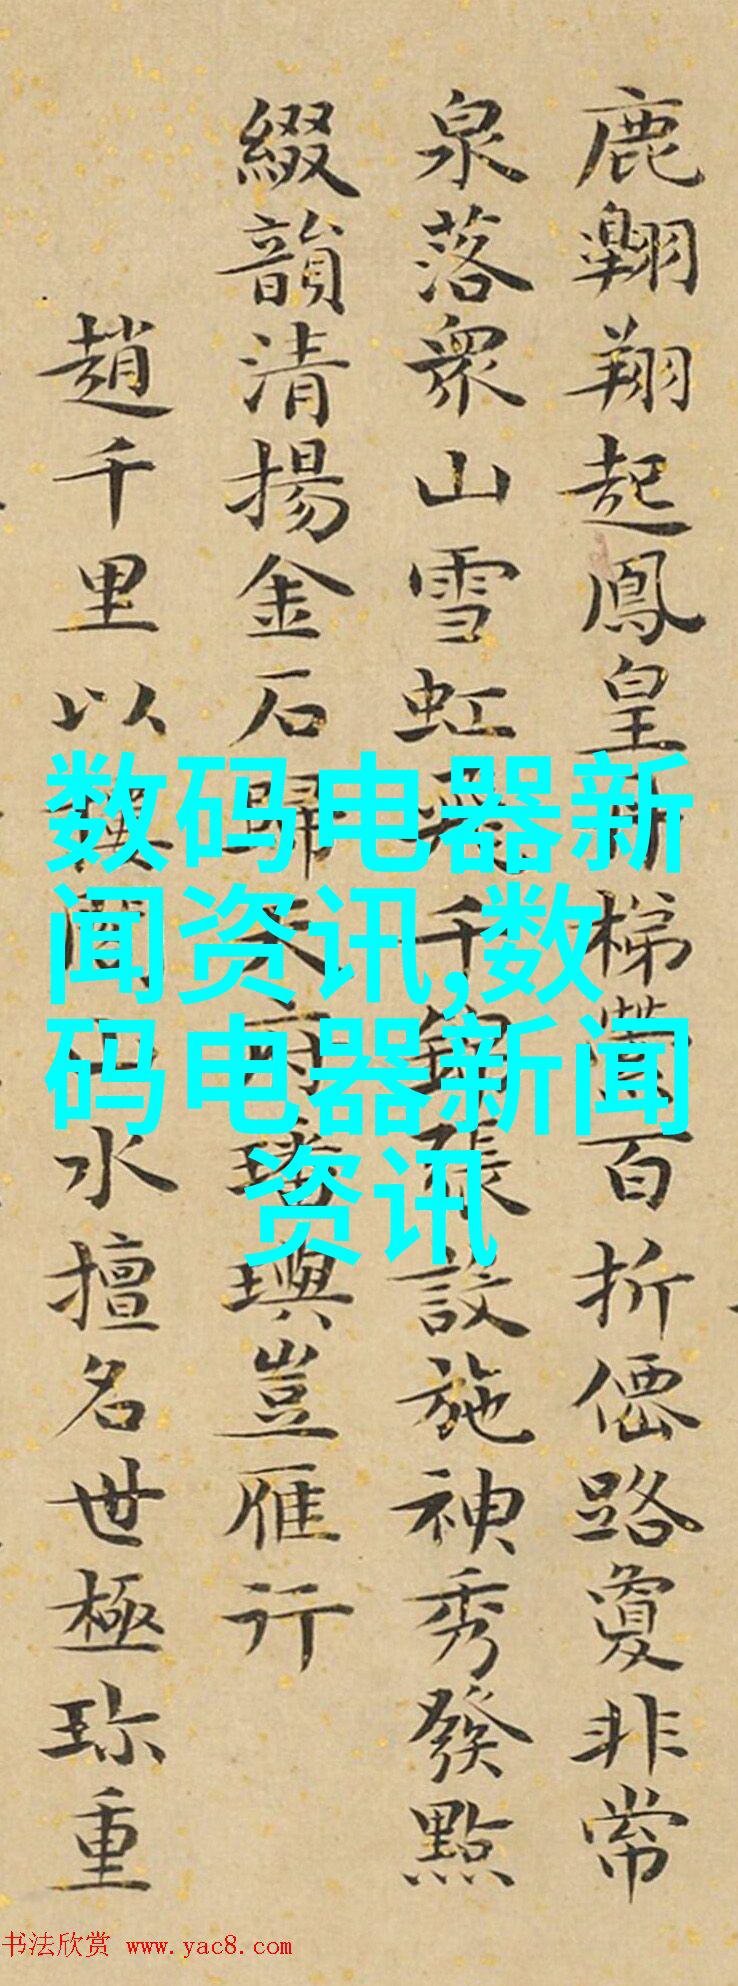 鹿翺翔起鳳皇丹梯縈百折僊路夐非常
泉落衆山雪虹飛千張設施神秀發點
綴韻清揚金石歸天府璠璵豈雁行
趙千里以樓閣山水擅名世極珎重
数码电器新
闻资讯,数
码电器新闻
资讯
书法欣赏 www.yac8.com